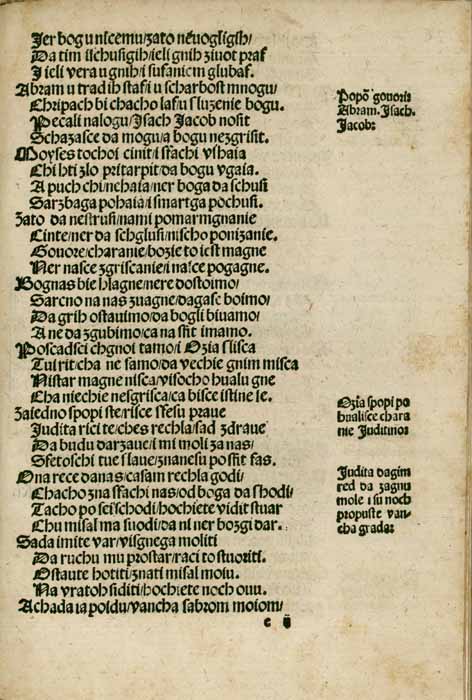 Jer bog u nicemu/zato neuogligih/
Da tim iſchuſigih/ieli gnih ziuot praſ
I ieli vera u gnih/i ſufaniem glubaſ.
Abram u trad ih ſtaſi u ſcharboſt mnogu/
Chripach bi chacho laſu ſluzenie bogu.
Pecali nalogu/Iſach Jacob noſit
Schazaſce da mogu/a bogu nezgriſit.
Moyſes tochoi cinit/i ſfachi vſhaia
Chi hti zlo pritarpit/da bogu vgaia.
A puch chi/nehaia/ner boga da ſchuſi
Sarzbaga pohaia/i ſmartga pochuſi.
Zato da neſtruſi/nami pomarmgnanie
Cinte/ner da ſchgluſi/niſcho ponizanie.
Gouore/charanie/bozie to ieſt magne
Ner naſce zgriſcanie/i naſce pogagne.
Bognas bie hlagne/nere doſtoimo/
Sarcno na nas zuagne/dagaſc boimo/
Da grih oſtauimo/da bogli biuamo/
A ne da zgubimo/ca na ſfit imamo.
Poſcadſci chgnoi tamo/i Ozia ſliſca
Tui rit/cha ne ſamo/da vechie gnim miſca
Niſtar magne niſca/viſocho hualu gne
Cha niechie neſgriſca/ca biſce iſtine ie.
Zaiedno ſpopi ſte/riſce ſſeſu praue
Judita rici te/ches rechla/ſad zdraue
Da budu darzaue/i mi moli za nas/
Sfetoſchi tue ſlaue/znaneſu po ſfit ſas.
Ona rece danas/caſam rechla godi/
Chacho zna ſfachi nas/od boga da ſhodi/
Tacho po ſei ſchodi/hochiete vidit ſtuar
Chu miſal ma ſuodi/da ni ner bozgi dar.
Sada imite var/viſgnega moliti
Da ruchu mu proſtar/raci to ſtuoriti.
Oſtaute hotiti/znati miſal moiu.
Na vratoh ſiditi/hochiete noch ouu.
Achada ia poidu/vancha ſabrom moiom/
Popō gouoris
Abram. Iſach.
Jacob:
Ozia ſpopi po
hualiſce chara
nie Juditino:
Judita dagim
red da zagnu
mole i ſu noch
propuſte van-
cha grada:
c ij